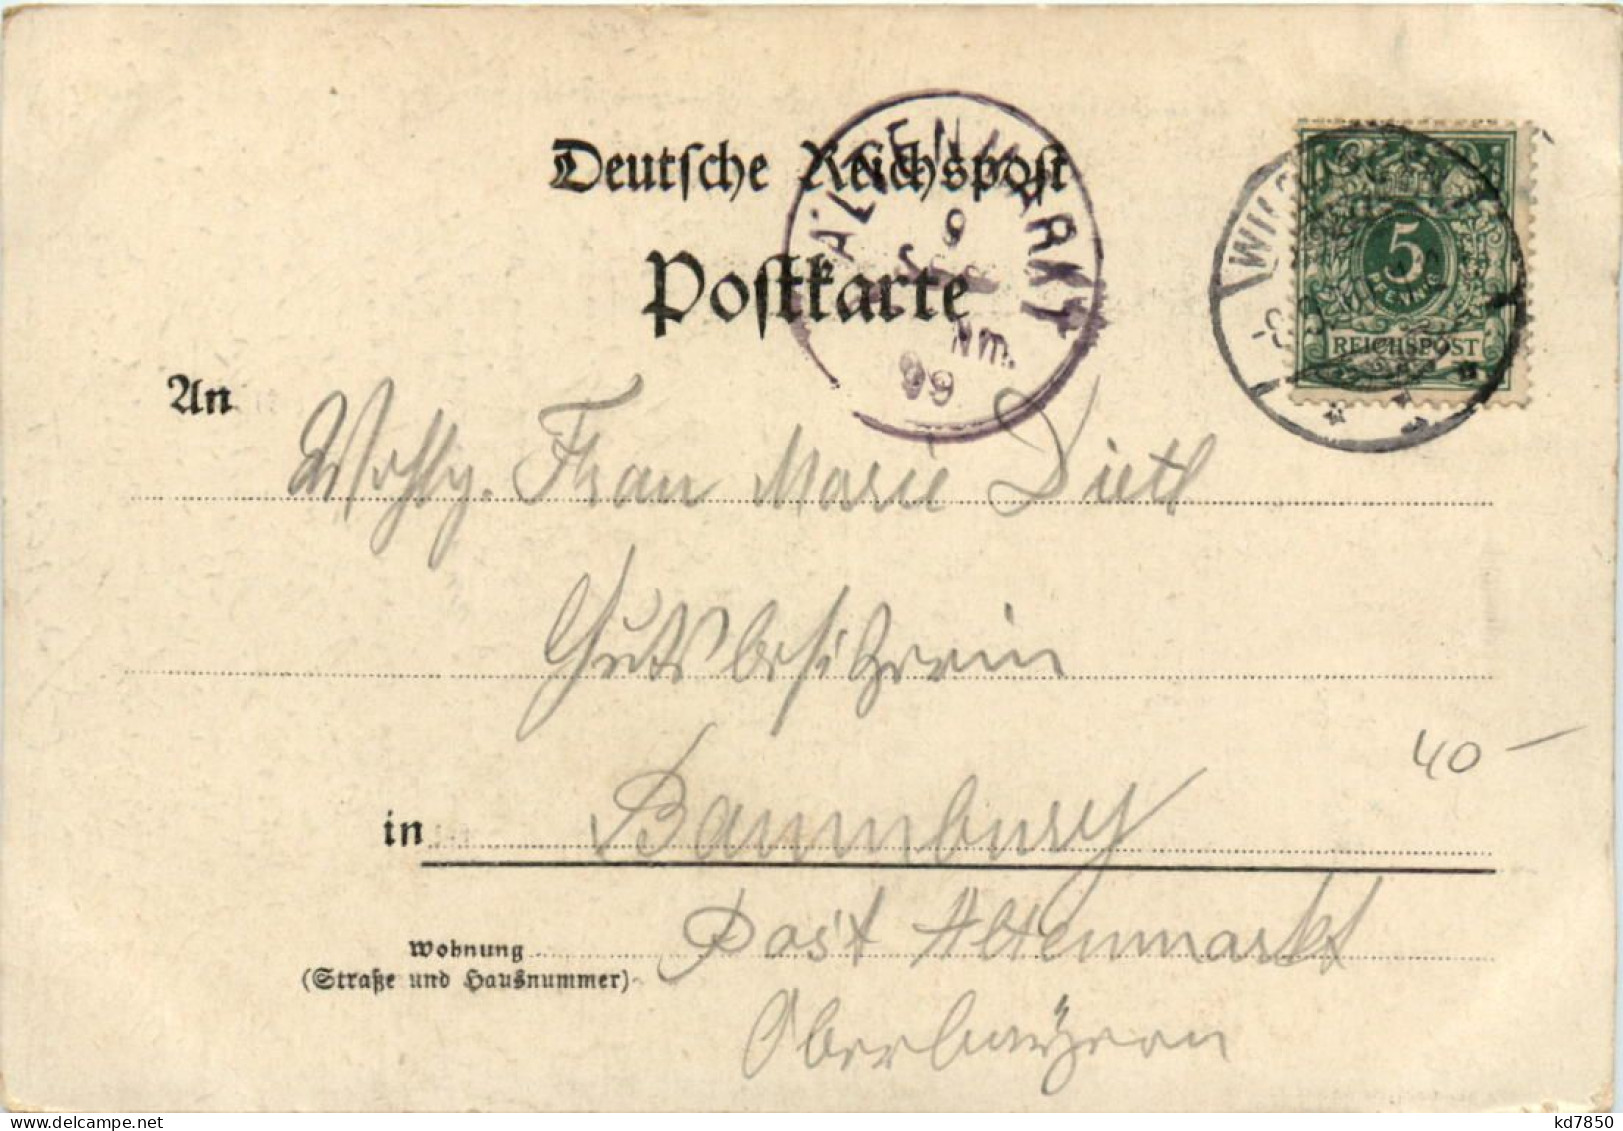 Deutsche Reichspost
Postkarte
ALTENMARKT
9
SEP
Nm.
99
5
PFENNIG
REICHSPOST
An
Wohlg. Frau Marie Dietl
Gutsbesitzerin
40 -
in Baumburg
Wohnung Post Altenmarkt
(Straße und Hausnummer)
Oberbayern
www.delcampe.net
kd7850